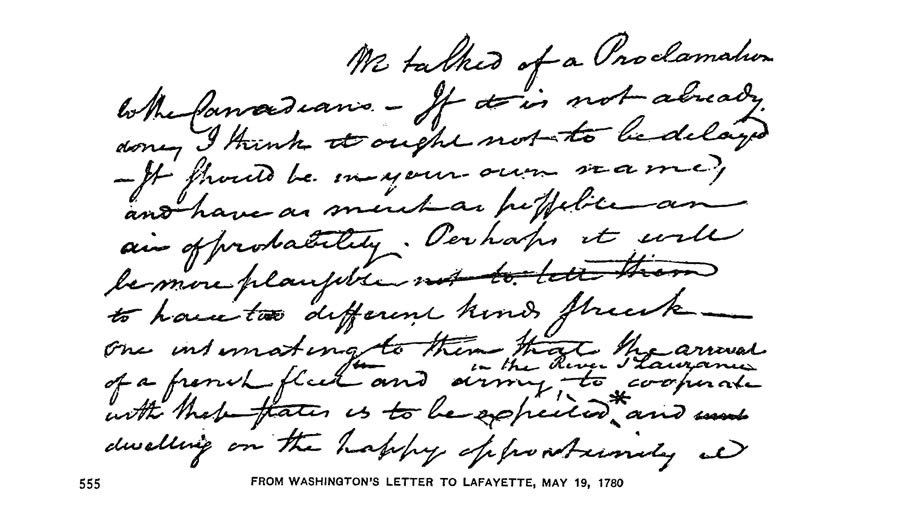 We talked of a Proclamation
to the Canadians. – If it is not already
done, I think it ought not to be delayed
– It should be in your own name,
and have as much as possible an
air of probability. Perhaps it will
be more plausible not to let them
to have two different kinds struck —
one intimating to them that the arrival
in the River St Laurance
of a french fleet and army, to cooperate
with these states is to be expected,* and
dwelling on the happy opportunity it
555 FROM WASHINGTON'S LETTER TO LAFAYETTE, MAY 19, 1780